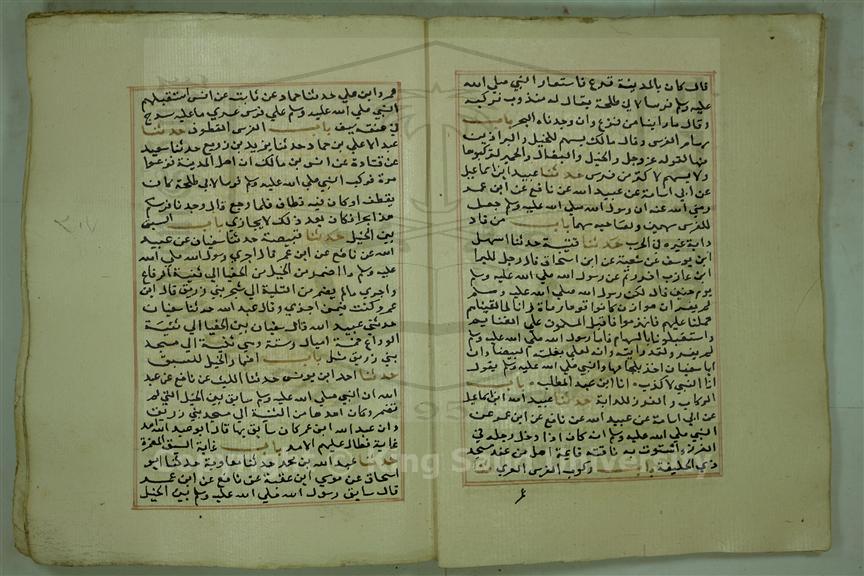 قال كان بالمدينة فزع فاستعار النبي صلى الله
عليه وسلم فرسا لابي طلحة يقال له مندوب فركبه
وقال ما راينا من فزع وان وجدناه لبحر باب
سهام الفرس وقال مالك يسهم للخيل والبراذين
منها لقوله عز وجل والخيل والبغال والحمير لتركبوها
ولا يسهم لاكثر من فرس حدثنا عبيد ابن اسماعيل
عن ابي اسامة عن عبيد الله عن نافع عن ابن عمر
رضي الله عنه ان رسول الله صلى الله عليه وسلم جعل
للفرس سهمين ولصاحبه سهما باب من قاد
دابة غيره في الحرب حدثنا قتيبة حدثنا اسهل
ابن يوسف عن شعبة عن ابن اسحاق قال رجل للبرا
ابن عازب افررتم عن رسول الله صلى الله عليه وسلم
يوم حنين قال لكن رسول الله صلى الله عليه وسلم
لم يفر ان هوازن كانوا قوما رماة وانا لما لقيناهم
حملنا عليهم فانهزموا فاقبل المسلمون على الغنايم
واستقبلونا بالسهام فاما رسول الله صلى الله عليه وسلم
لم يفر ولقد رايته وانه لعلى بغلته البيضا وان
ابا سفيان اخذ بلجامها والنبي صلى الله عليه وسلم يقول
انا النبي لا كذب انا ابن عبد المطلب باب
الركاب والغرز للدابة حدثنا عبيد الله ابن اسماعيل
عن ابي اسامة عن عبيد الله عن نافع عن ابن عمر عن
النبي صلى الله عليه وسلم انه كان اذا دخل رجله في
الغرز واستوت به ناقته قايمة اهل من عند مسجد
ذي الحليفة باب ركوب الفرس العري
عمرو ابن حدثنا حماد عن ثابت عن انس استقبلهم
النبي صلى الله عليه وسلم على فرس عري ما عليه سرج
في عنقه سيف باب الفرس القطوف حدثنا
عبد الاعلى بن حماد حدثنا يزيد بن زريع حدثنا سعيد
عن قتادة عن انس بن مالك ان اهل المدينة فزعوا
مرة فركب النبي صلى الله عليه وسلم فرسا لابي طلحة كان
يقطف او كان فيه قطاف فلما رجع قال وجدنا فرسكم
هذا بحرا فكان بعد ذلك لا يجارى باب السبق
بين الخيل حدثنا قبيصة حدثنا سفيان عن عبيد
الله عن نافع عن ابن عمر قال اجرى رسول الله صلى الله
عليه وسلم ما اضمر من الخيل من الحفيا الى ثنية الوداع
واجرى ما لم يضمر من الثنية الى مسجد بني زريق قال ابن
عمر وكنت فيمن اجرى وقال عبد الله حدثنا سفيان
حدثني عبيد الله قال سفيان بين الحفيا الى ثنية
الوداع خمسة اميال وستة وبين ثنية الى مسجد
بني زريق ميل باب اضمار الخيل للسبق
حدثنا احمد ابن يونس حدثنا الليث عن نافع عن عبد
الله ان النبي صلى الله عليه وسلم سابق بين الخيل التي لم
تضمر وكان امدها من الثنية الى مسجد بني زريق
وان عبد الله ابن عمر كان سابق بها قال ابو عبد الله امد
غاية فطال عليهم الامد باب غاية السبق المضمرة
حدثنا عبد الله بن محمد حدثنا معاوية حدثنا ابو
اسحاق عن موسى ابن عقبة عن نافع عن ابن عمر
قال سابق رسول الله صلى الله عليه وسلم بين الخيل